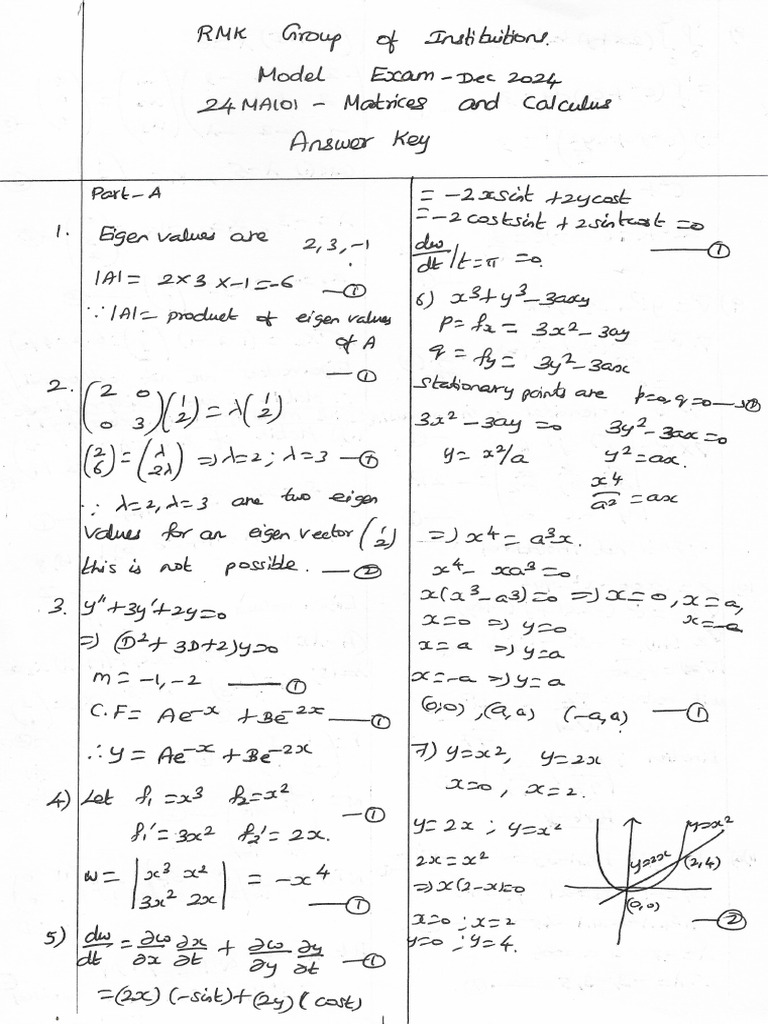 RMK Group of Instituitions.
Model Exam - Dec 2024
24MA101 - Matrices and Calculus
Answer Key
Part-A
1. Eigen values are 2, 3, -1
|A| = 2×3×-1 = -6 — ①
∵ |A| = product of eigen values
of A
— ①
2. (2 0; 0 3)(1; 2) = λ(1; 2)
(2; 6) = (λ; 2λ) => λ=2; λ=3 — ①
∵ λ=2, λ=3 are two eigen
values for an eigen vector (1; 2)
this is not possible. — ②
3. y''+3y'+2y=0
=> (D²+3D+2)y=0
m = -1, -2 — ①
C.F = Ae^-x + Be^-2x — ①
∴ y = Ae^-x + Be^-2x
4) Let f₁ = x³ f₂ = x² — ①
f₁' = 3x² f₂' = 2x.
w = |x³ x²; 3x² 2x| = -x⁴ — ①
5) dw/dt = ∂ω/∂x ∂x/∂t + ∂ω/∂y ∂y/∂t — ①
= (2x)(-sint) + (2y)(cost)
= -2xsint + 2ycost
= -2costsint + 2sintcost = 0
dw/dt / t=π = 0. — ①
6) x³+y³-3axy
p = fx = 3x²-3ay
q = fy = 3y²-3ax
Stationary points are p=0, q=0 — ①
3x²-3ay=0 3y²-3ax=0
y = x²/a y²=ax.
x⁴/a² = ax
=> x⁴ = a³x.
x⁴ - xa³ = 0
x(x³-a³)=0 => x=0, x=a,
x=-a
x=0 => y=0
x=a => y=a
x=-a => y=a
(0,0), (a,a) (-a,a) — ①
7) y=x², y=2x
x=0, x=2.
y=2x ; y=x²
2x = x²
=> x(2-x)=0
x=0 ; x=2
y=0 ; y=4. — ②
y=x²
y=2x
(2,4)
(0,0)